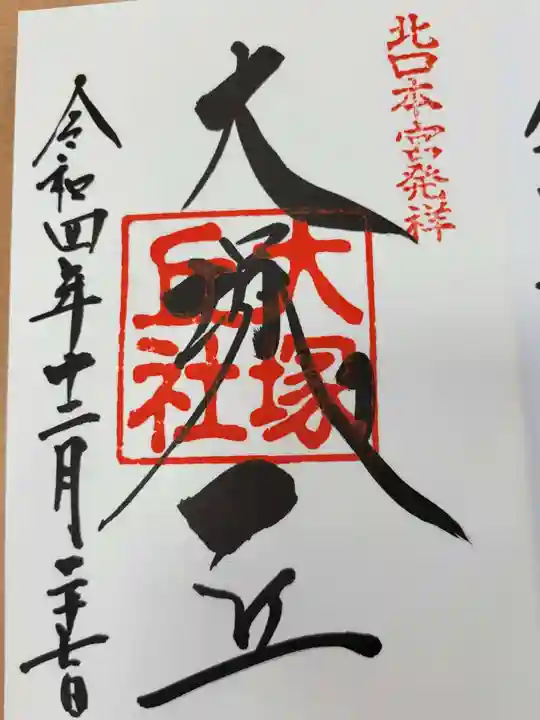 北口本宮発祥
大塚丘
大塚
丘社
令和四年十二月二十七日